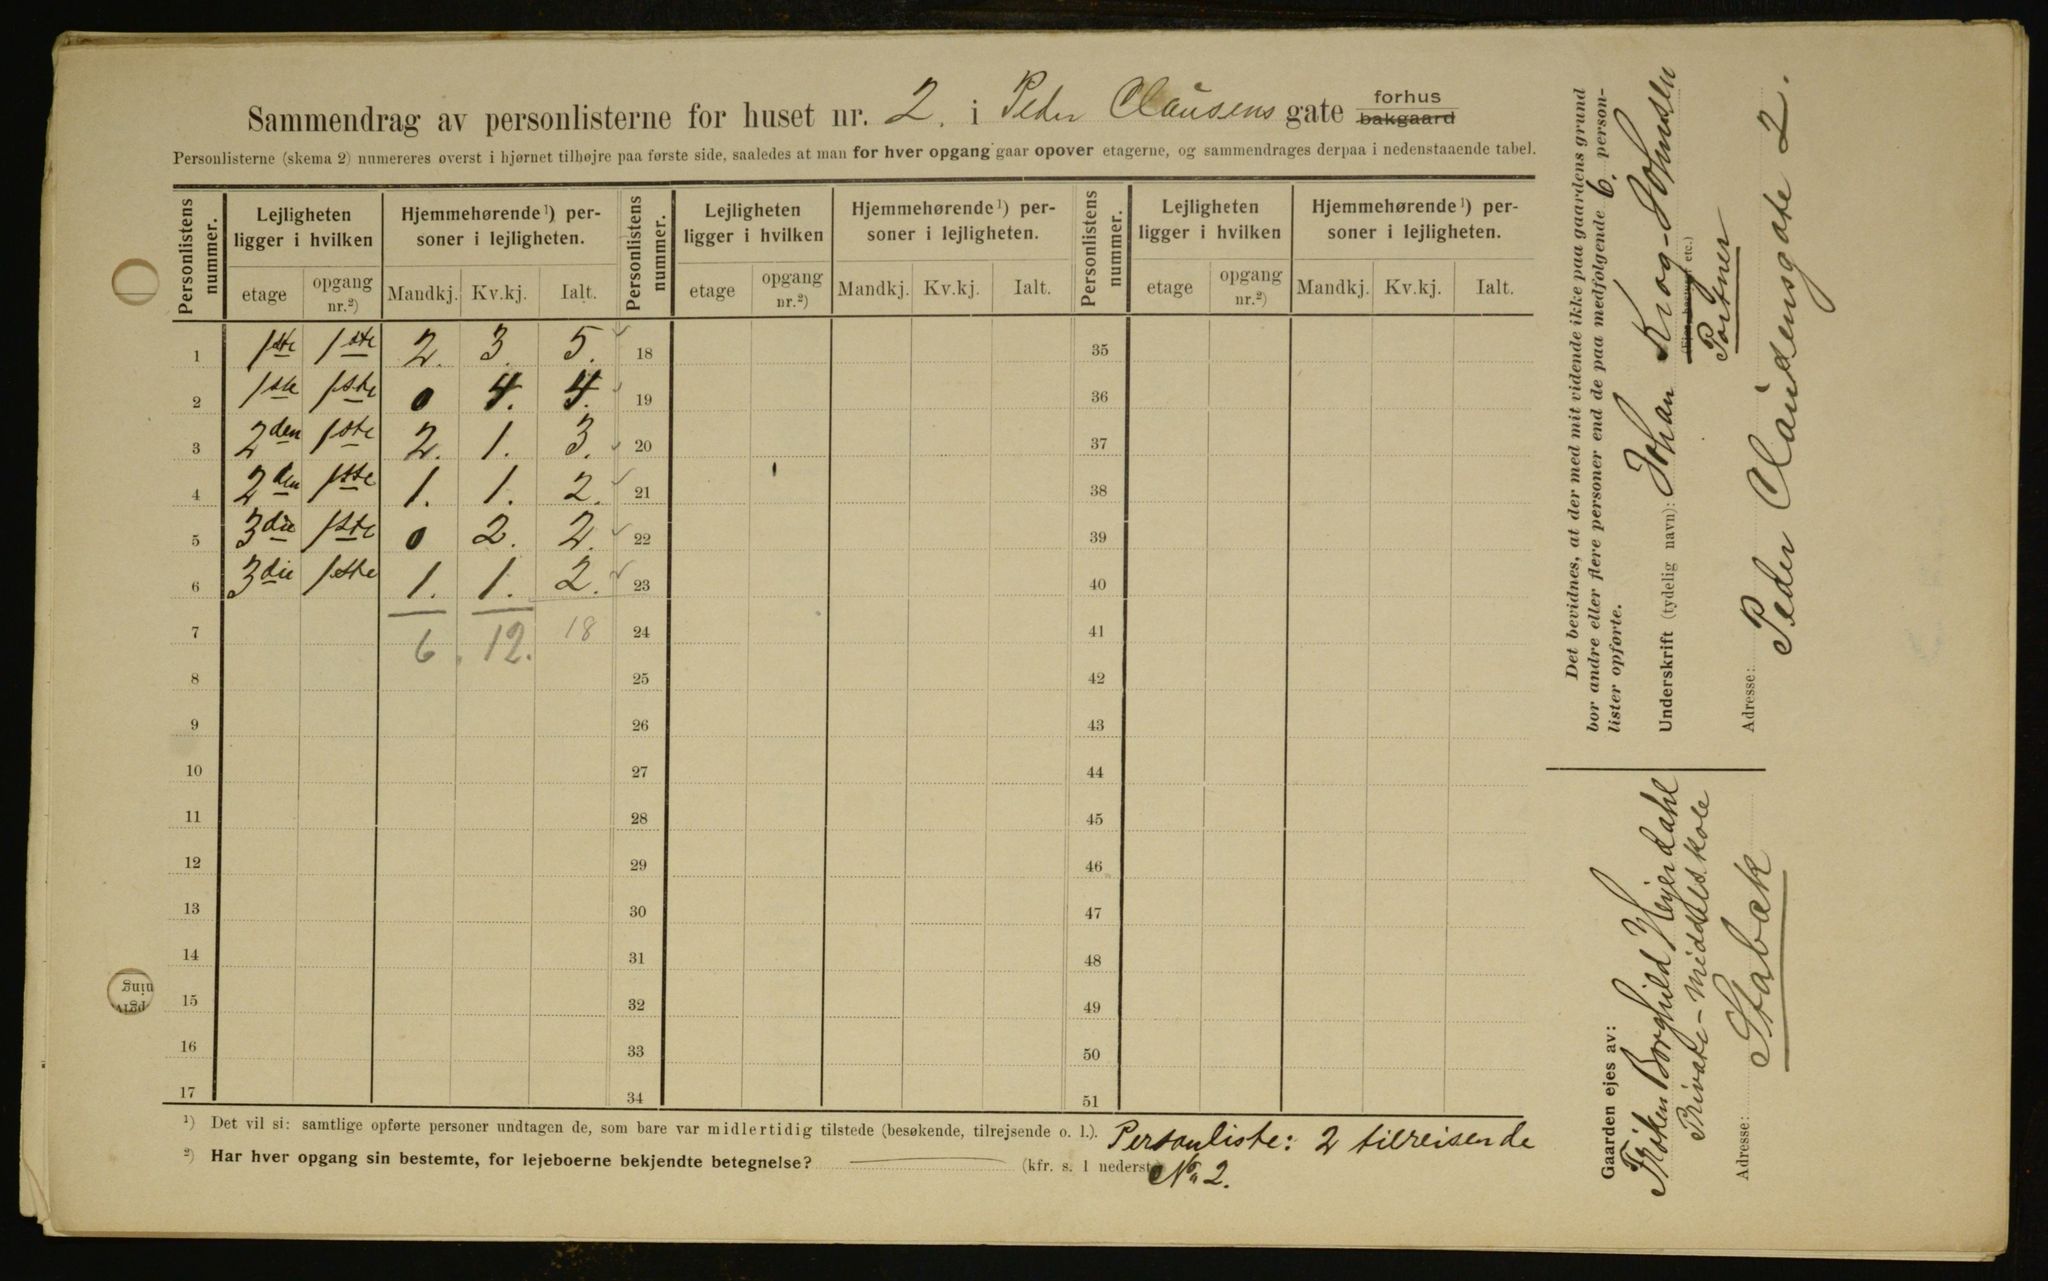 Sammendrag av personlisterne for huset nr. 2. i Peder Clausens gate forhus bakgaard
Personlisterne (skema 2) numereres øverst i hjørnet tilhøjre paa første side, saaledes at man for hver opgang gaar opover etagerne, og sammendrages derpaa i nedenstaaende tabel.
Personlistens nummer. Lejligheten ligger i hvilken Hjemmehørende¹) personer i lejligheten. Personlistens nummer. Lejligheten ligger i hvilken Hjemmehørende¹) personer i lejligheten. Personlistens nummer. Lejligheten ligger i hvilken Hjemmehørende¹) personer i lejligheten.
etage opgang nr.²) Mandkj. Kv.kj. Ialt. etage opgang nr.²) Mandkj. Kv.kj. Ialt. etage opgang nr.²) Mandkj. Kv.kj. Ialt.
1 1ste 1ste 2. 3. 5. 18 35
2 1ste 1ste 0 4. 4. 19 36
3 2den 1ste 2. 1. 3. 20 37
4 2den 1ste 1. 1. 2. 21 38
5 3die 1ste 0 2. 2. 22 39
6 3die 1ste 1. 1. 2. 23 40
7 6. 12. 18 24 41
8 25 42
9 26 43
10 27 44
11 28 45
12 29 46
13 30 47
14 31 48
15 32 49
16 33 50
17 34 51
¹) Det vil si: samtlige opførte personer undtagen de, som bare var midlertidig tilstede (besøkende, tilrejsende o. l.).
²) Har hver opgang sin bestemte, for lejeboerne bekjendte betegnelse? (kfr. s. 1 nederst
Personliste: 2 tilreisende
No 2.
Det bevidnes, at der med mit vidende ikke paa gaardens grund
bor andre eller flere personer end de paa medfølgende 6. person-
lister opførte.
Underskrift (tydelig navn): Johan Krog-Johnsen
(Ejer, bestyrer etc.)
Portner
Adresse: Peder Claudensgate 2.
Gaarden ejes av:
Frøken Borghild Heijerdahl
Private-Middelskole
Adresse: Stabæk